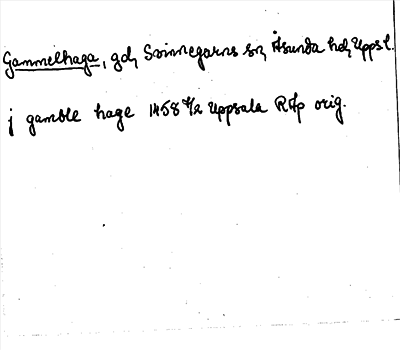 Gammelhaga, gd, Svinnegarns sn, Åsunda hd, Uppsl.
j gamble hage 1458 4/2 Uppsala RAp orig.